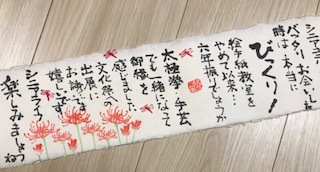 シニアライフ
バッタリお会いした
時は本当に
びっくり!
絵手紙教室を
やめて以来…
六年振りでしょうか
太極拳手芸
でも一緒になって
御縁を
感じました。
文化祭の
出展に
お誘い
嬉しいです
シニアライフ
楽しみましょうね